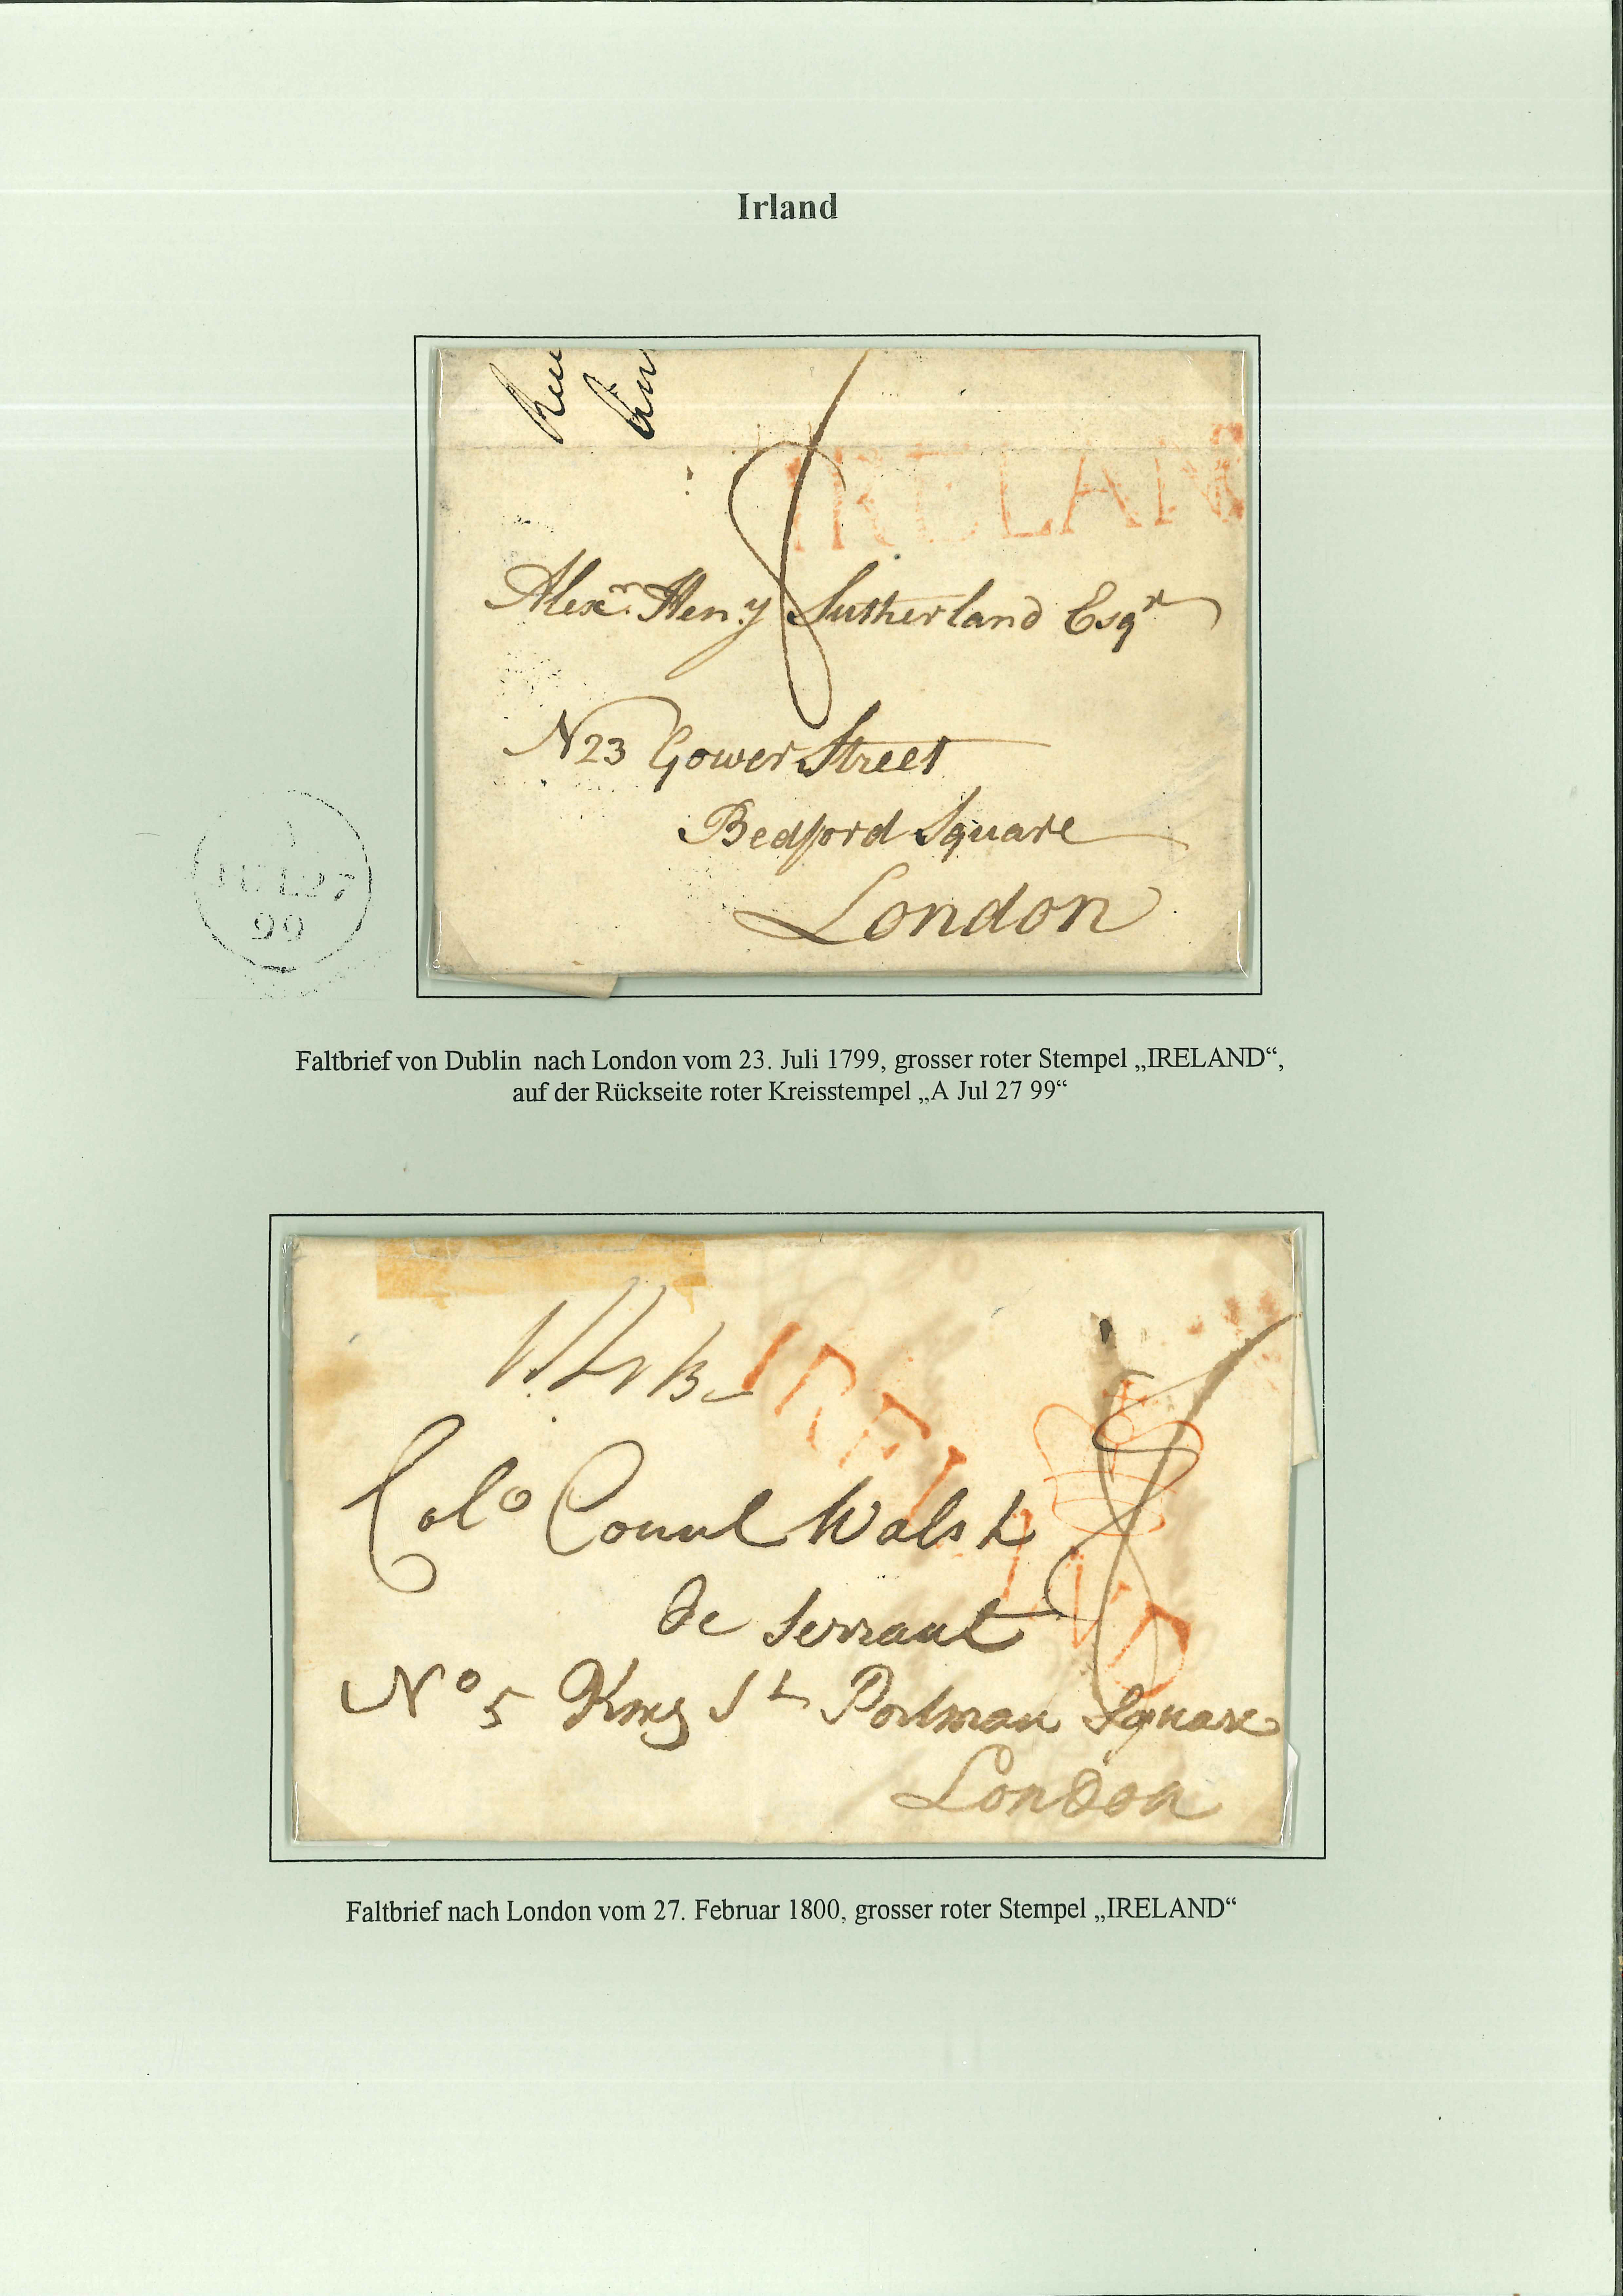 Irland
8
IRELAN
Alexr. Heny Sutherland Esqr
N 23 Gower Street
Bedford Square
London
A
JUL 27
99
Faltbrief von Dublin nach London vom 23. Juli 1799, grosser roter Stempel „IRELAND“,
auf der Rückseite roter Kreisstempel „A Jul 27 99“
IRELAND
8
Colo Walsh
de Serrant
No 5 King St Portman Square
London
Faltbrief nach London vom 27. Februar 1800, grosser roter Stempel „IRELAND“